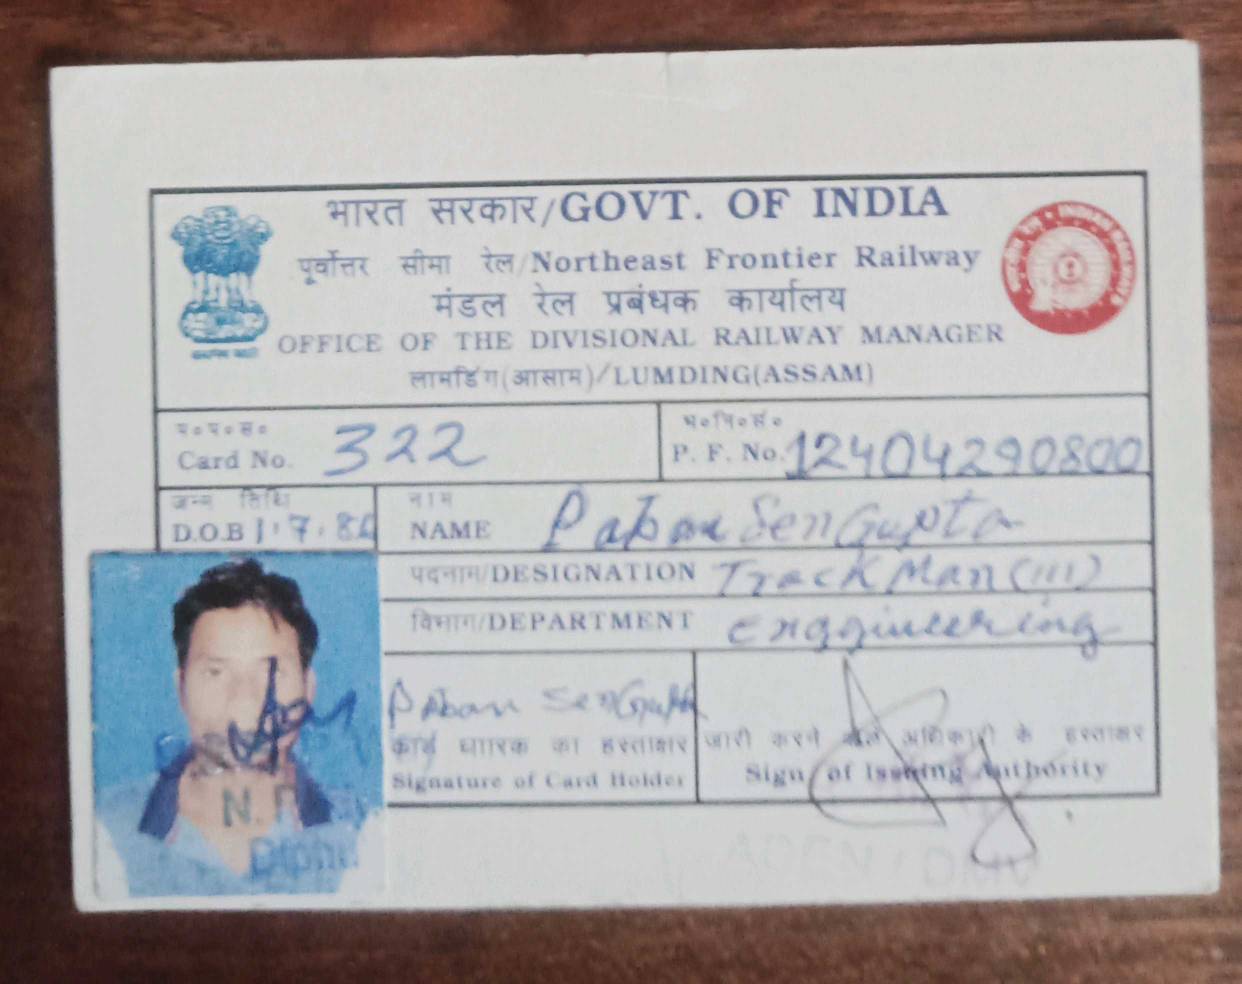 भारत सरकार/GOVT. OF INDIA
पूर्वोत्तर सीमा रेल/Northeast Frontier Railway
मंडल रेल प्रबंधक कार्यालय
OFFICE OF THE DIVISIONAL RAILWAY MANAGER
लामडिंग(आसाम)/LUMDING(ASSAM)
प०प०स०
Card No. 322
भ०नि०सं०
P. F. No. 12404290800
जन्म तिथि
D.O.B 1.7.86
नाम
NAME Paban SenGupta
पदनाम/DESIGNATION TrackMan (III)
विभाग/DEPARTMENT Enggineering
Paban SenGupta
कार्ड धारक का हस्ताक्षर
Signature of Card Holder
जारी करने वाले अधिकारी के हस्ताक्षर
Sign of Issuing Authority